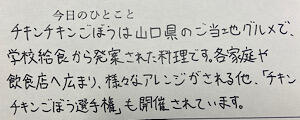 今日のひとこと
チキンチキンごぼうは山口県のご当地グルメで、
学校給食から発案された料理です。各家庭や
飲食店へ広まり、様々なアレンジがされる他、「チキン
チキンごぼう選手権」も開催されています。